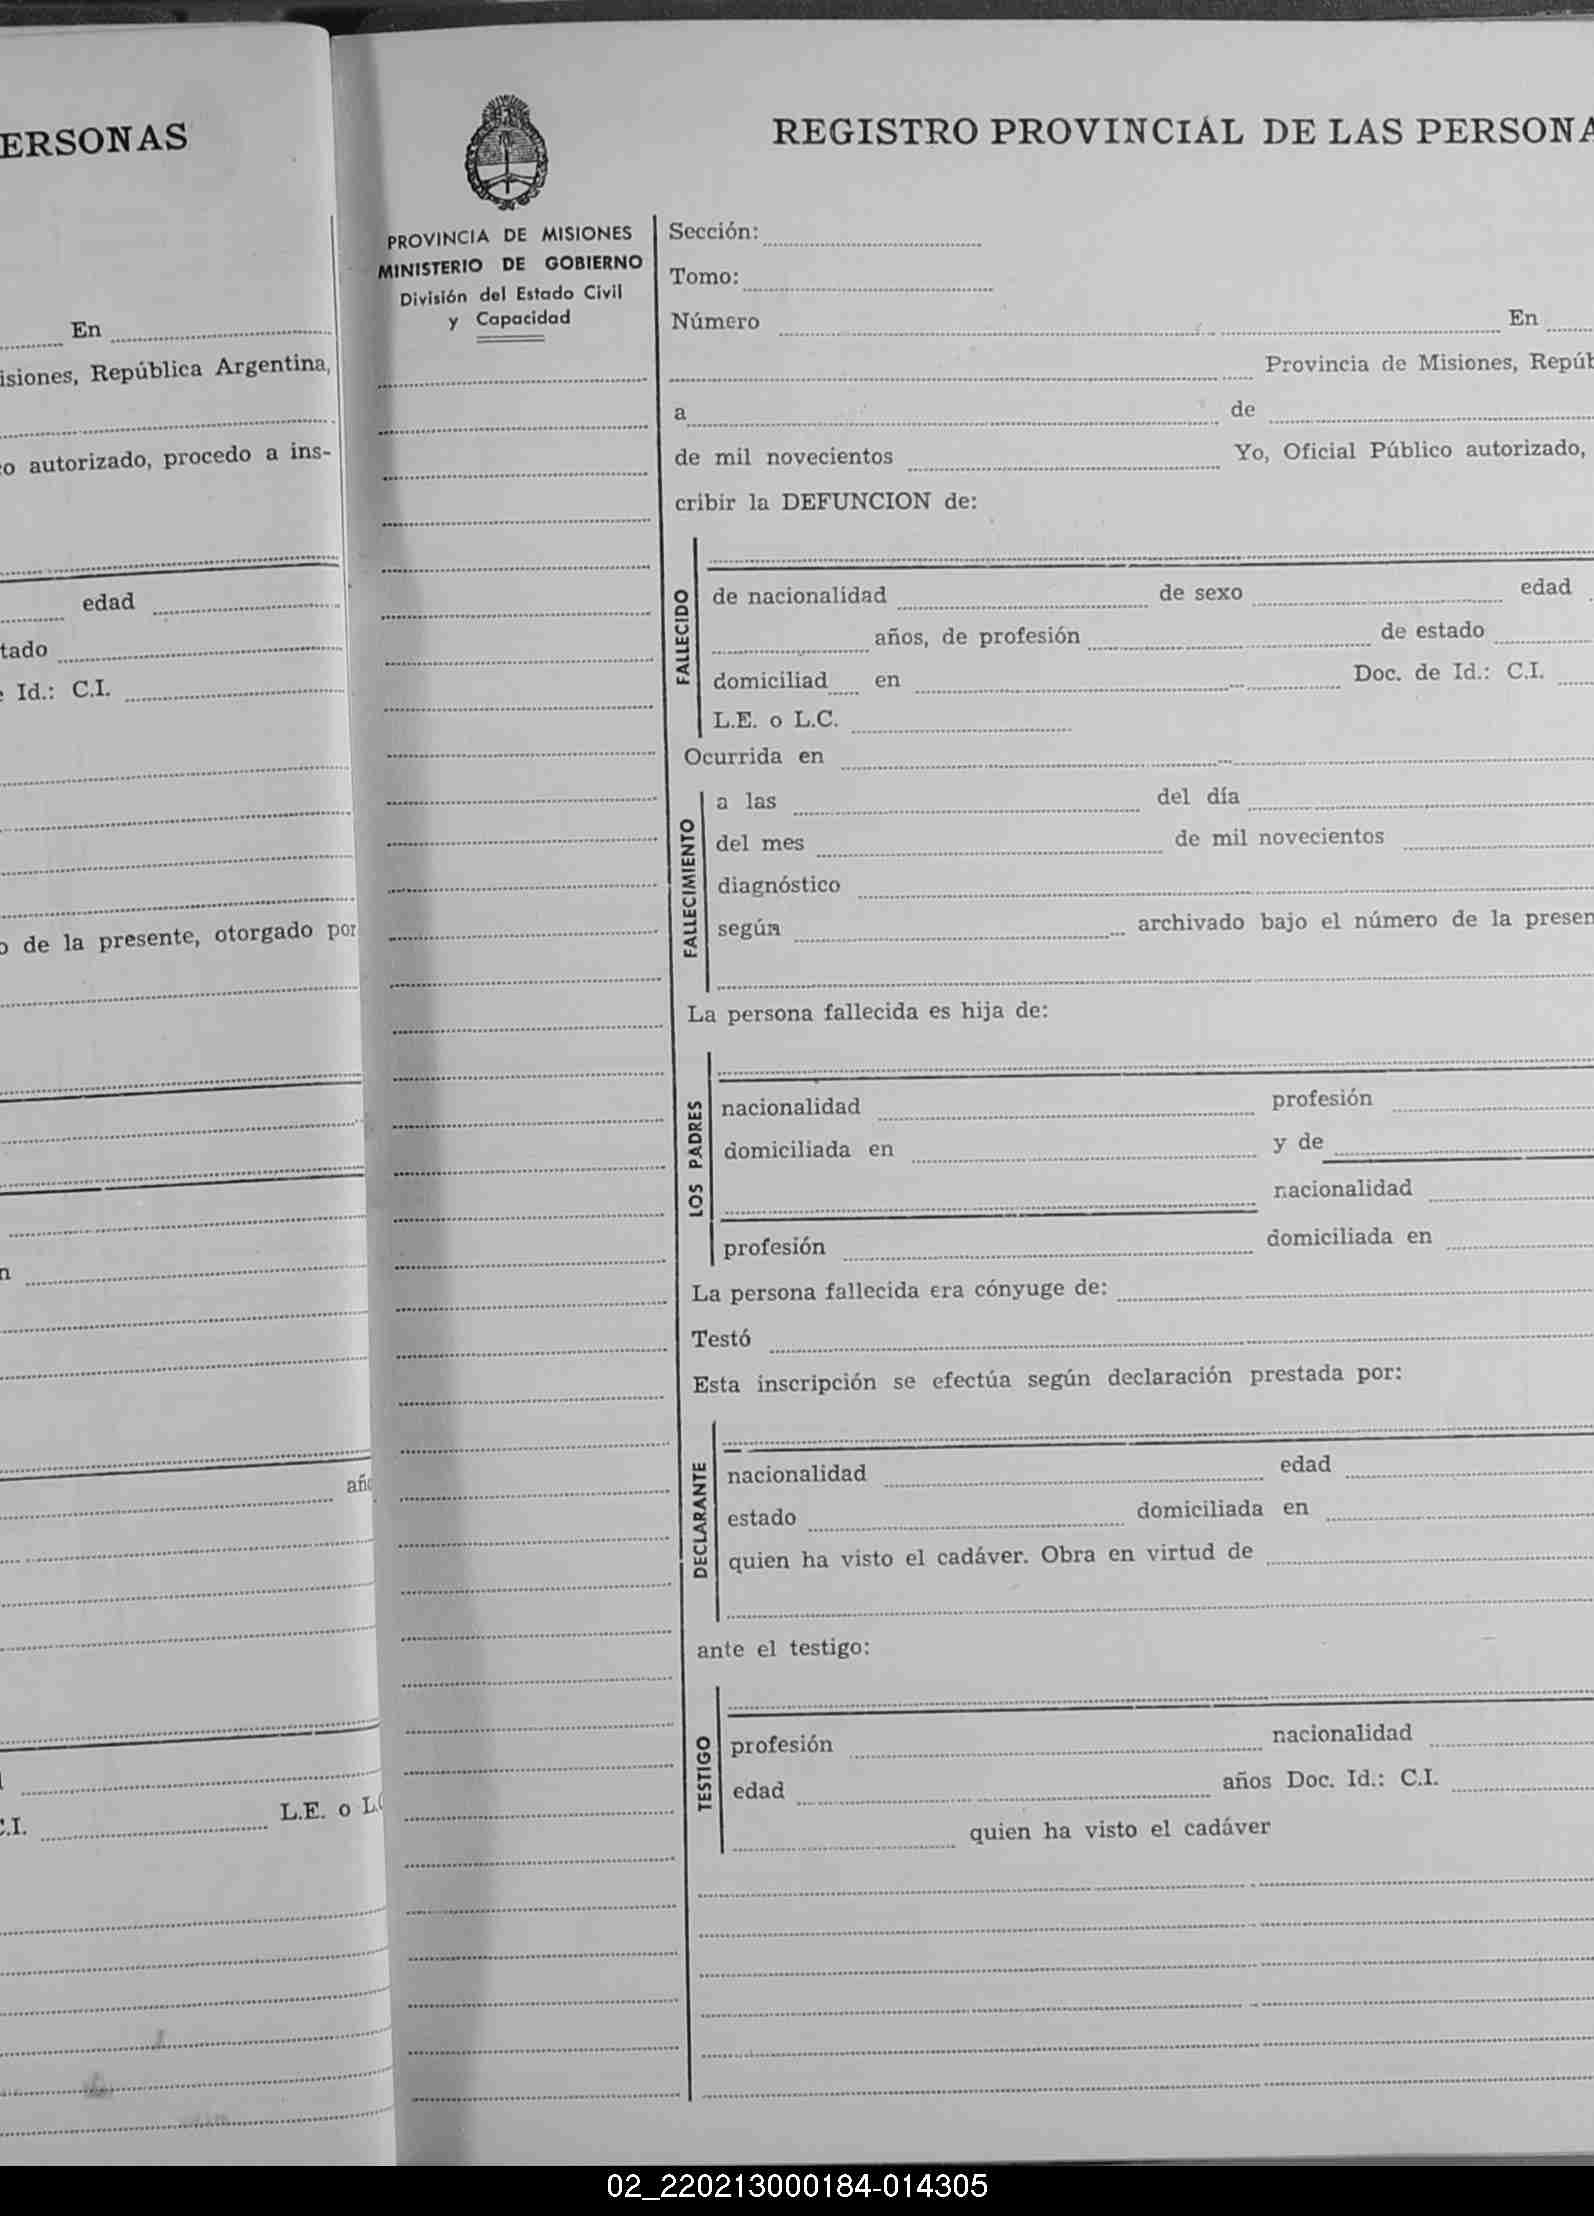 ERSONAS
En
isiones, República Argentina,
o autorizado, procedo a ins-
edad
tado
Id.: C.I.
de la presente, otorgado por
L.E. o
REGISTRO PROVINCIAL DE LAS PERSONA
PROVINCIA DE MISIONES
MINISTERIO DE GOBIERNO
División del Estado Civil
y Capacidad
Sección:
Tomo:
Número En
Provincia de Misiones, Repúb
a de
de mil novecientos Yo, Oficial Público autorizado,
cribir la DEFUNCION de:
FALLECIDO
de nacionalidad de sexo edad
años, de profesión de estado
domiciliad en Doc. de Id.: C.I.
L.E. o L.C.
Ocurrida en
FALLECIMIENTO
a las del día
del mes de mil novecientos
diagnóstico
según archivado bajo el número de la presen
La persona fallecida es hija de:
LOS PADRES
nacionalidad profesión
domiciliada en y de
nacionalidad
profesión domiciliada en
La persona fallecida era cónyuge de:
Testó
Esta inscripción se efectúa según declaración prestada por:
DECLARANTE
nacionalidad edad
estado domiciliada en
quien ha visto el cadáver. Obra en virtud de
ante el testigo:
TESTIGO
profesión nacionalidad
edad años Doc. Id.: C.I.
quien ha visto el cadáver
02_220213000184-014305